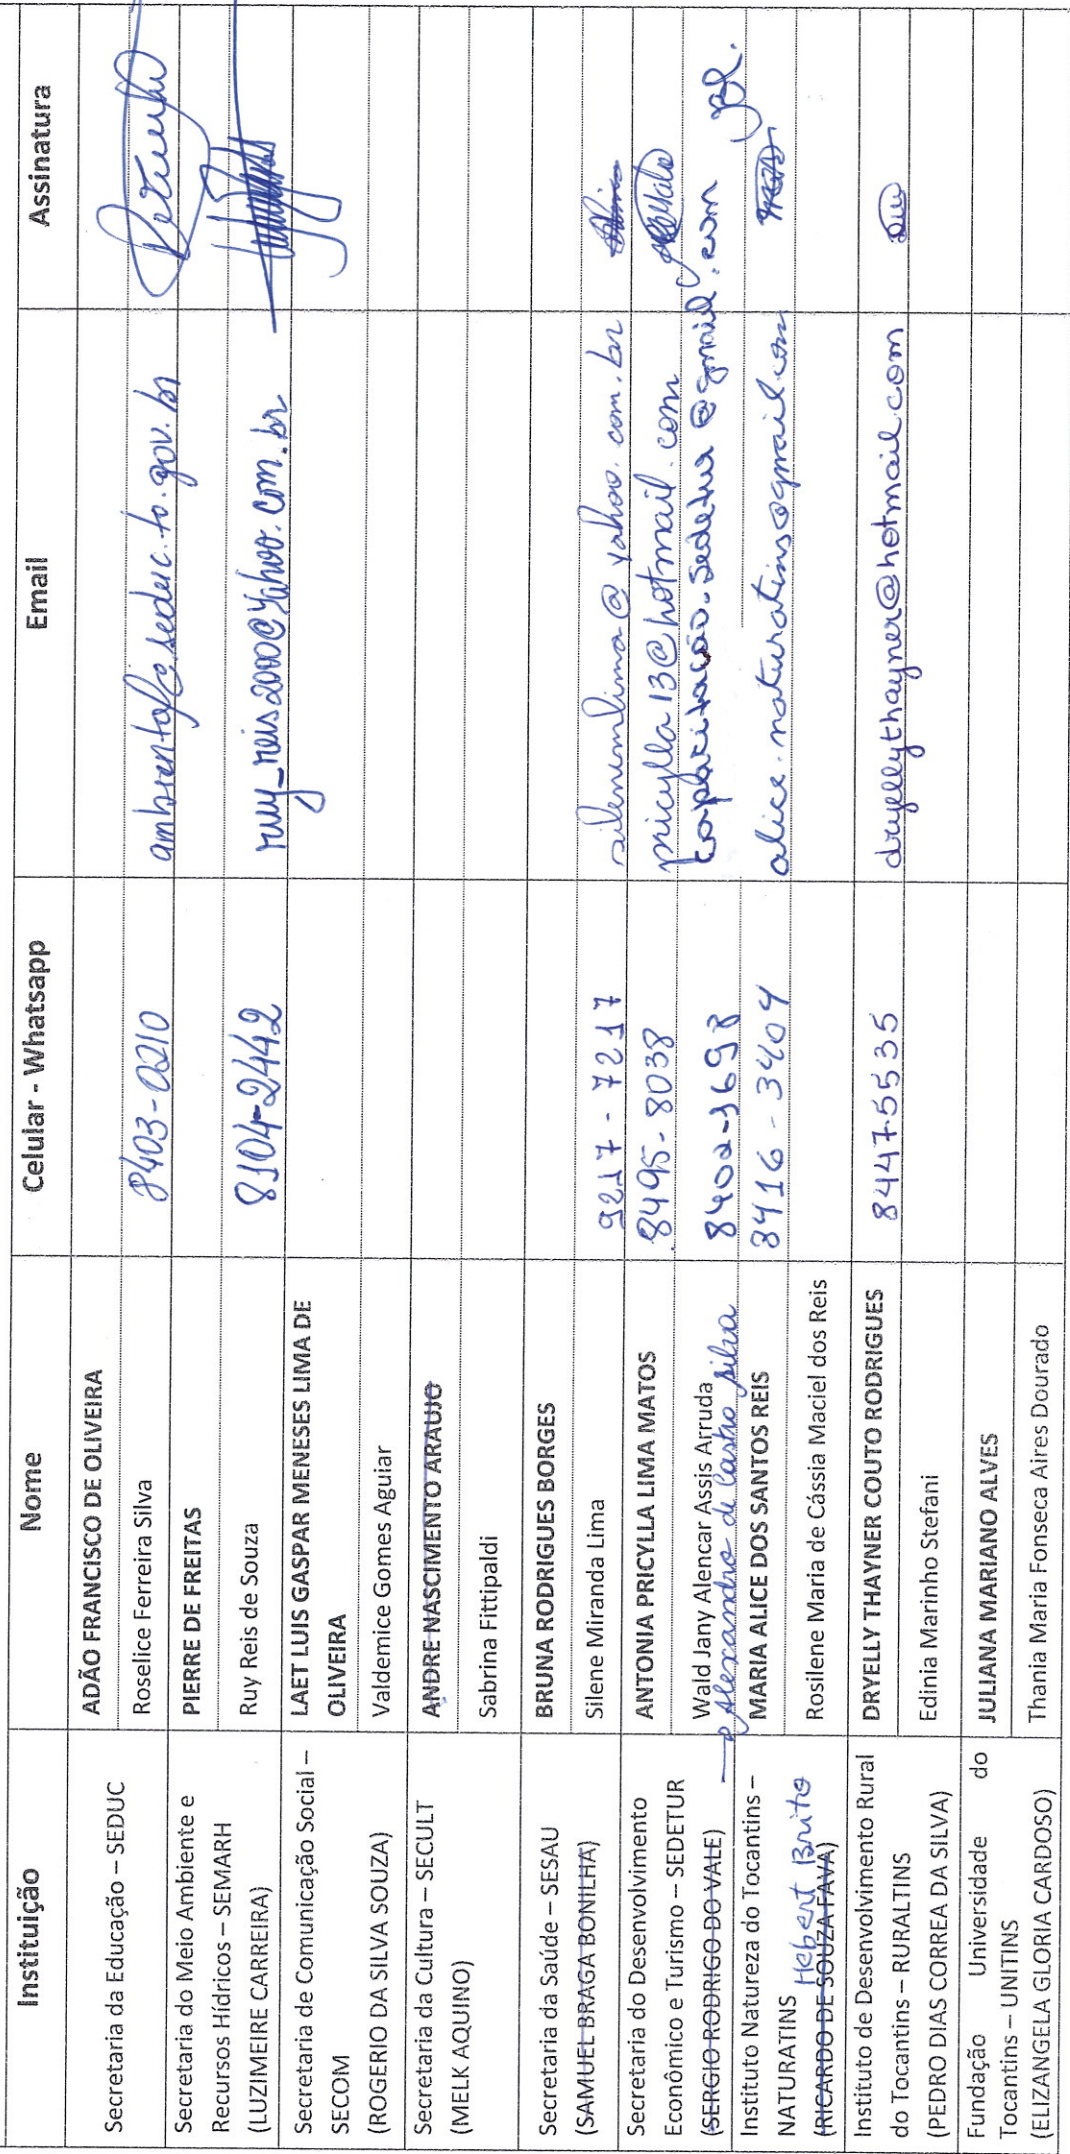 Instituição Nome Celular - Whatsapp Email Assinatura
Secretaria da Educação – SEDUC
ADÃO FRANCISCO DE OLIVEIRA
Roselice Ferreira Silva 8403-0210
Secretaria do Meio Ambiente e
Recursos Hídricos – SEMARH
(LUZIMEIRE CARREIRA)
PIERRE DE FREITAS
Ruy Reis de Souza 8104-2442 ruy_reis2000@yahoo.com.br
Secretaria de Comunicação Social –
SECOM
(ROGERIO DA SILVA SOUZA)
LAET LUIS GASPAR MENESES LIMA DE
OLIVEIRA
Valdemice Gomes Aguiar
Secretaria da Cultura – SECULT
(MELK AQUINO)
ANDRE NASCIMENTO ARAUJO
Sabrina Fittipaldi
Secretaria da Saúde – SESAU
(SAMUEL BRAGA BONILHA)
BRUNA RODRIGUES BORGES
Silene Miranda Lima 9217-7217
Secretaria do Desenvolvimento
Econômico e Turismo – SEDETUR
(SERGIO RODRIGO DO VALE)
ANTONIA PRICYLLA LIMA MATOS 8495-8038 pricylla13@hotmail.com
Wald Jany Alencar Assis Arruda
Alexandro de Castro Silva 8402-1698
Instituto Natureza do Tocantins –
NATURATINS Hebert Brito
(RICARDO DE SOUZA FAVA)
MARIA ALICE DOS SANTOS REIS 8416-3404 alice.naturatins@gmail.com
Rosilene Maria de Cássia Maciel dos Reis
Instituto de Desenvolvimento Rural
do Tocantins – RURALTINS
(PEDRO DIAS CORREA DA SILVA)
DRYELLY THAYNER COUTO RODRIGUES 84475535 dryellythayner@hotmail.com
Edinia Marinho Stefani
Fundação Universidade do
Tocantins – UNITINS
(ELIZANGELA GLORIA CARDOSO)
JULIANA MARIANO ALVES
Thania Maria Fonseca Aires Dourado